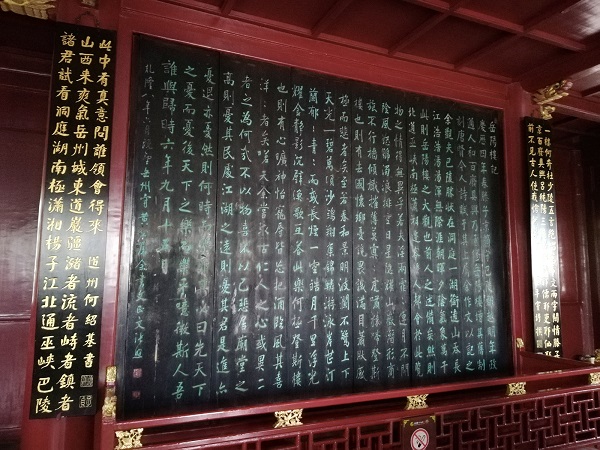 一樓何奇杜少陵五言絕
京百廢俱興呂純陽三
前不見古人使我愴
岳陽樓記
慶歷四年春滕子京謫守巴陵郡越明年政
通人和百廢具興乃重修岳陽樓增其舊制
刻唐賢今人詩賦于其上屬余作文以記之
予觀夫巴陵勝狀在洞庭一湖銜遠山吞長
江浩浩湯湯橫無際涯朝暉夕陰氣象萬千
此則岳陽樓之大觀也前人之述備矣然則
北通巫峽南極瀟湘遷客騷人多會於此覽
物之情得無異乎若夫霪雨霏霏連月不開
陰風怒號濁浪排空日星隱曜山岳潛形商
旅不行檣傾楫摧薄暮冥冥虎嘯猿啼登斯
樓也則有去國懷鄉憂讒畏譏滿目蕭然感
極而悲者矣至若春和景明波瀾不驚上下
天光一碧萬頃沙鷗翔集錦鱗游泳岸芷汀
蘭郁々青々而或長煙一空皓月千里浮光
耀金靜影沉璧漁歌互答此樂何極登斯樓
也則有心曠神怡寵辱皆忘把酒臨風其喜
洋々者矣嗟夫予嘗求古仁人之心或異二
者之為何哉不以物喜不以己悲居廟堂之
高則憂其民處江湖之遠則憂其君是進亦
憂退亦憂然則何時而樂耶其必曰先天下
之憂而憂後天下之樂而樂乎噫微斯人吾
誰與歸時六年九月十五日
乾隆八年
此中有真意問誰領會得來 道州何紹基書
山西來爽氣岳州城東道巖疆瀦者流者峙者鎮者
諸君試看洞庭湖南極瀟湘楊子江北通巫峽巴陵